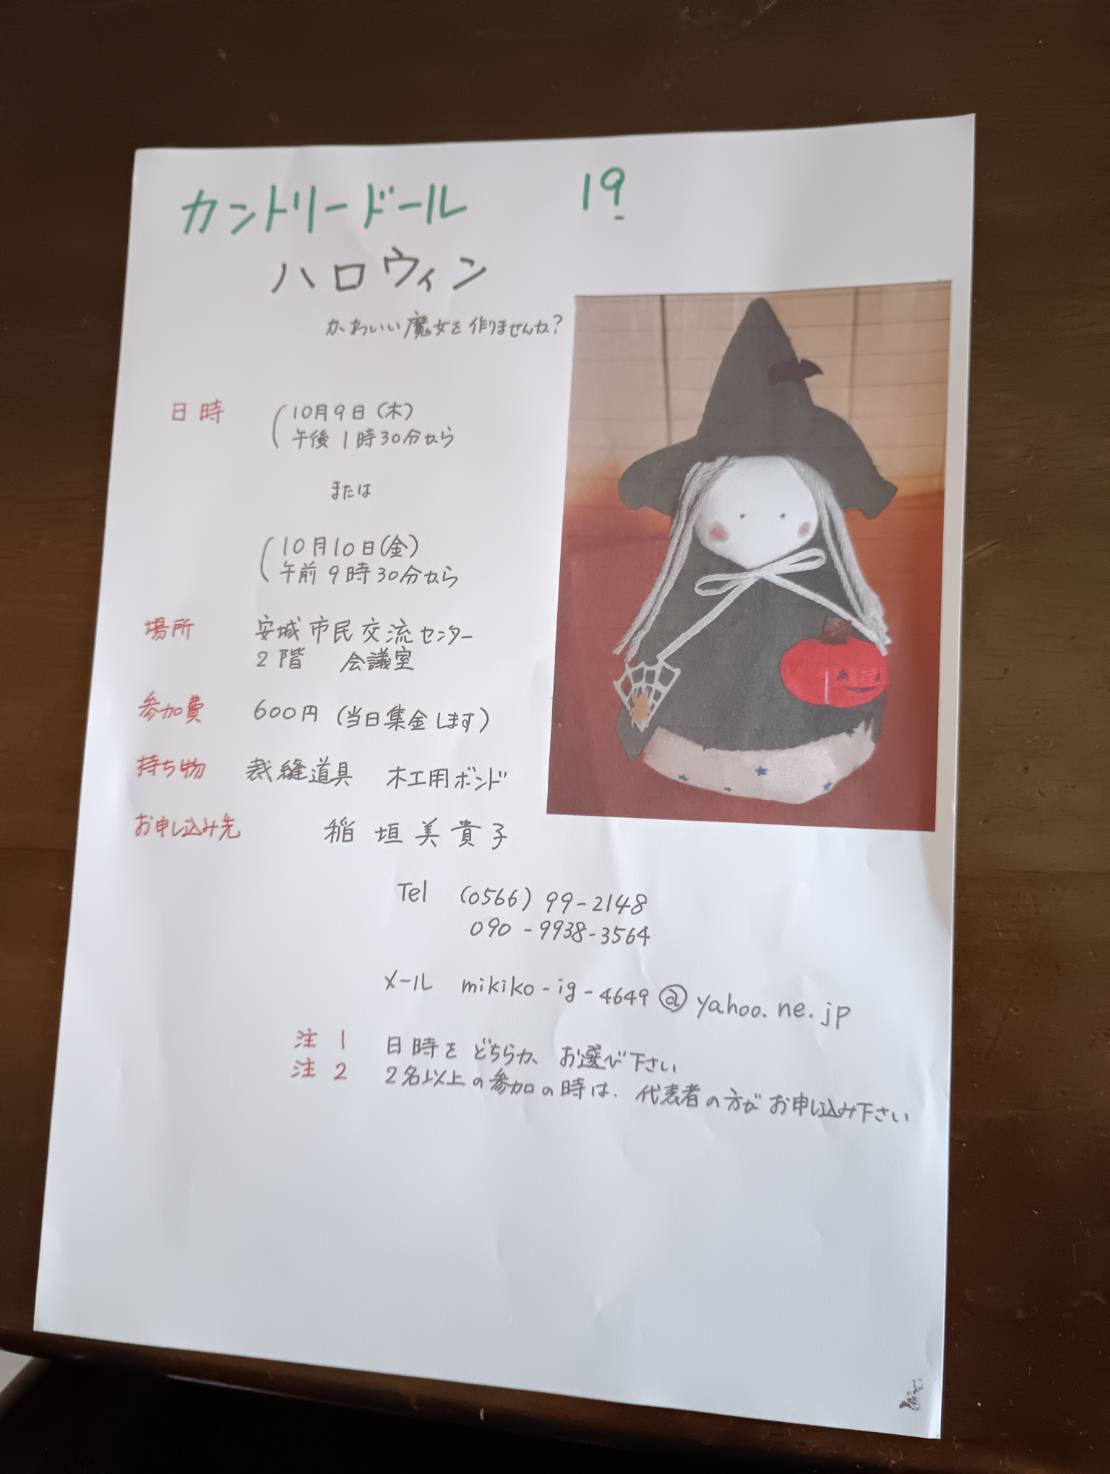 カントリードール 19
ハロウィン
かわいい魔女を作りませんか？
日時 10月9日（木）
午後1時30分から
または
10月10日（金）
午前9時30分から
場所 安城市民交流センター
2階 会議室
参加費 600円（当日集金します）
持ち物 裁縫道具 木工用ボンド
お申し込み先 稲垣美貴子
Tel (0566) 99-2148
090-9938-3564
メール mikiko-ig-4649@yahoo.ne.jp
注1 日時をどちらか お選び下さい
注2 2名以上の参加の時は、代表者の方がお申し込み下さい